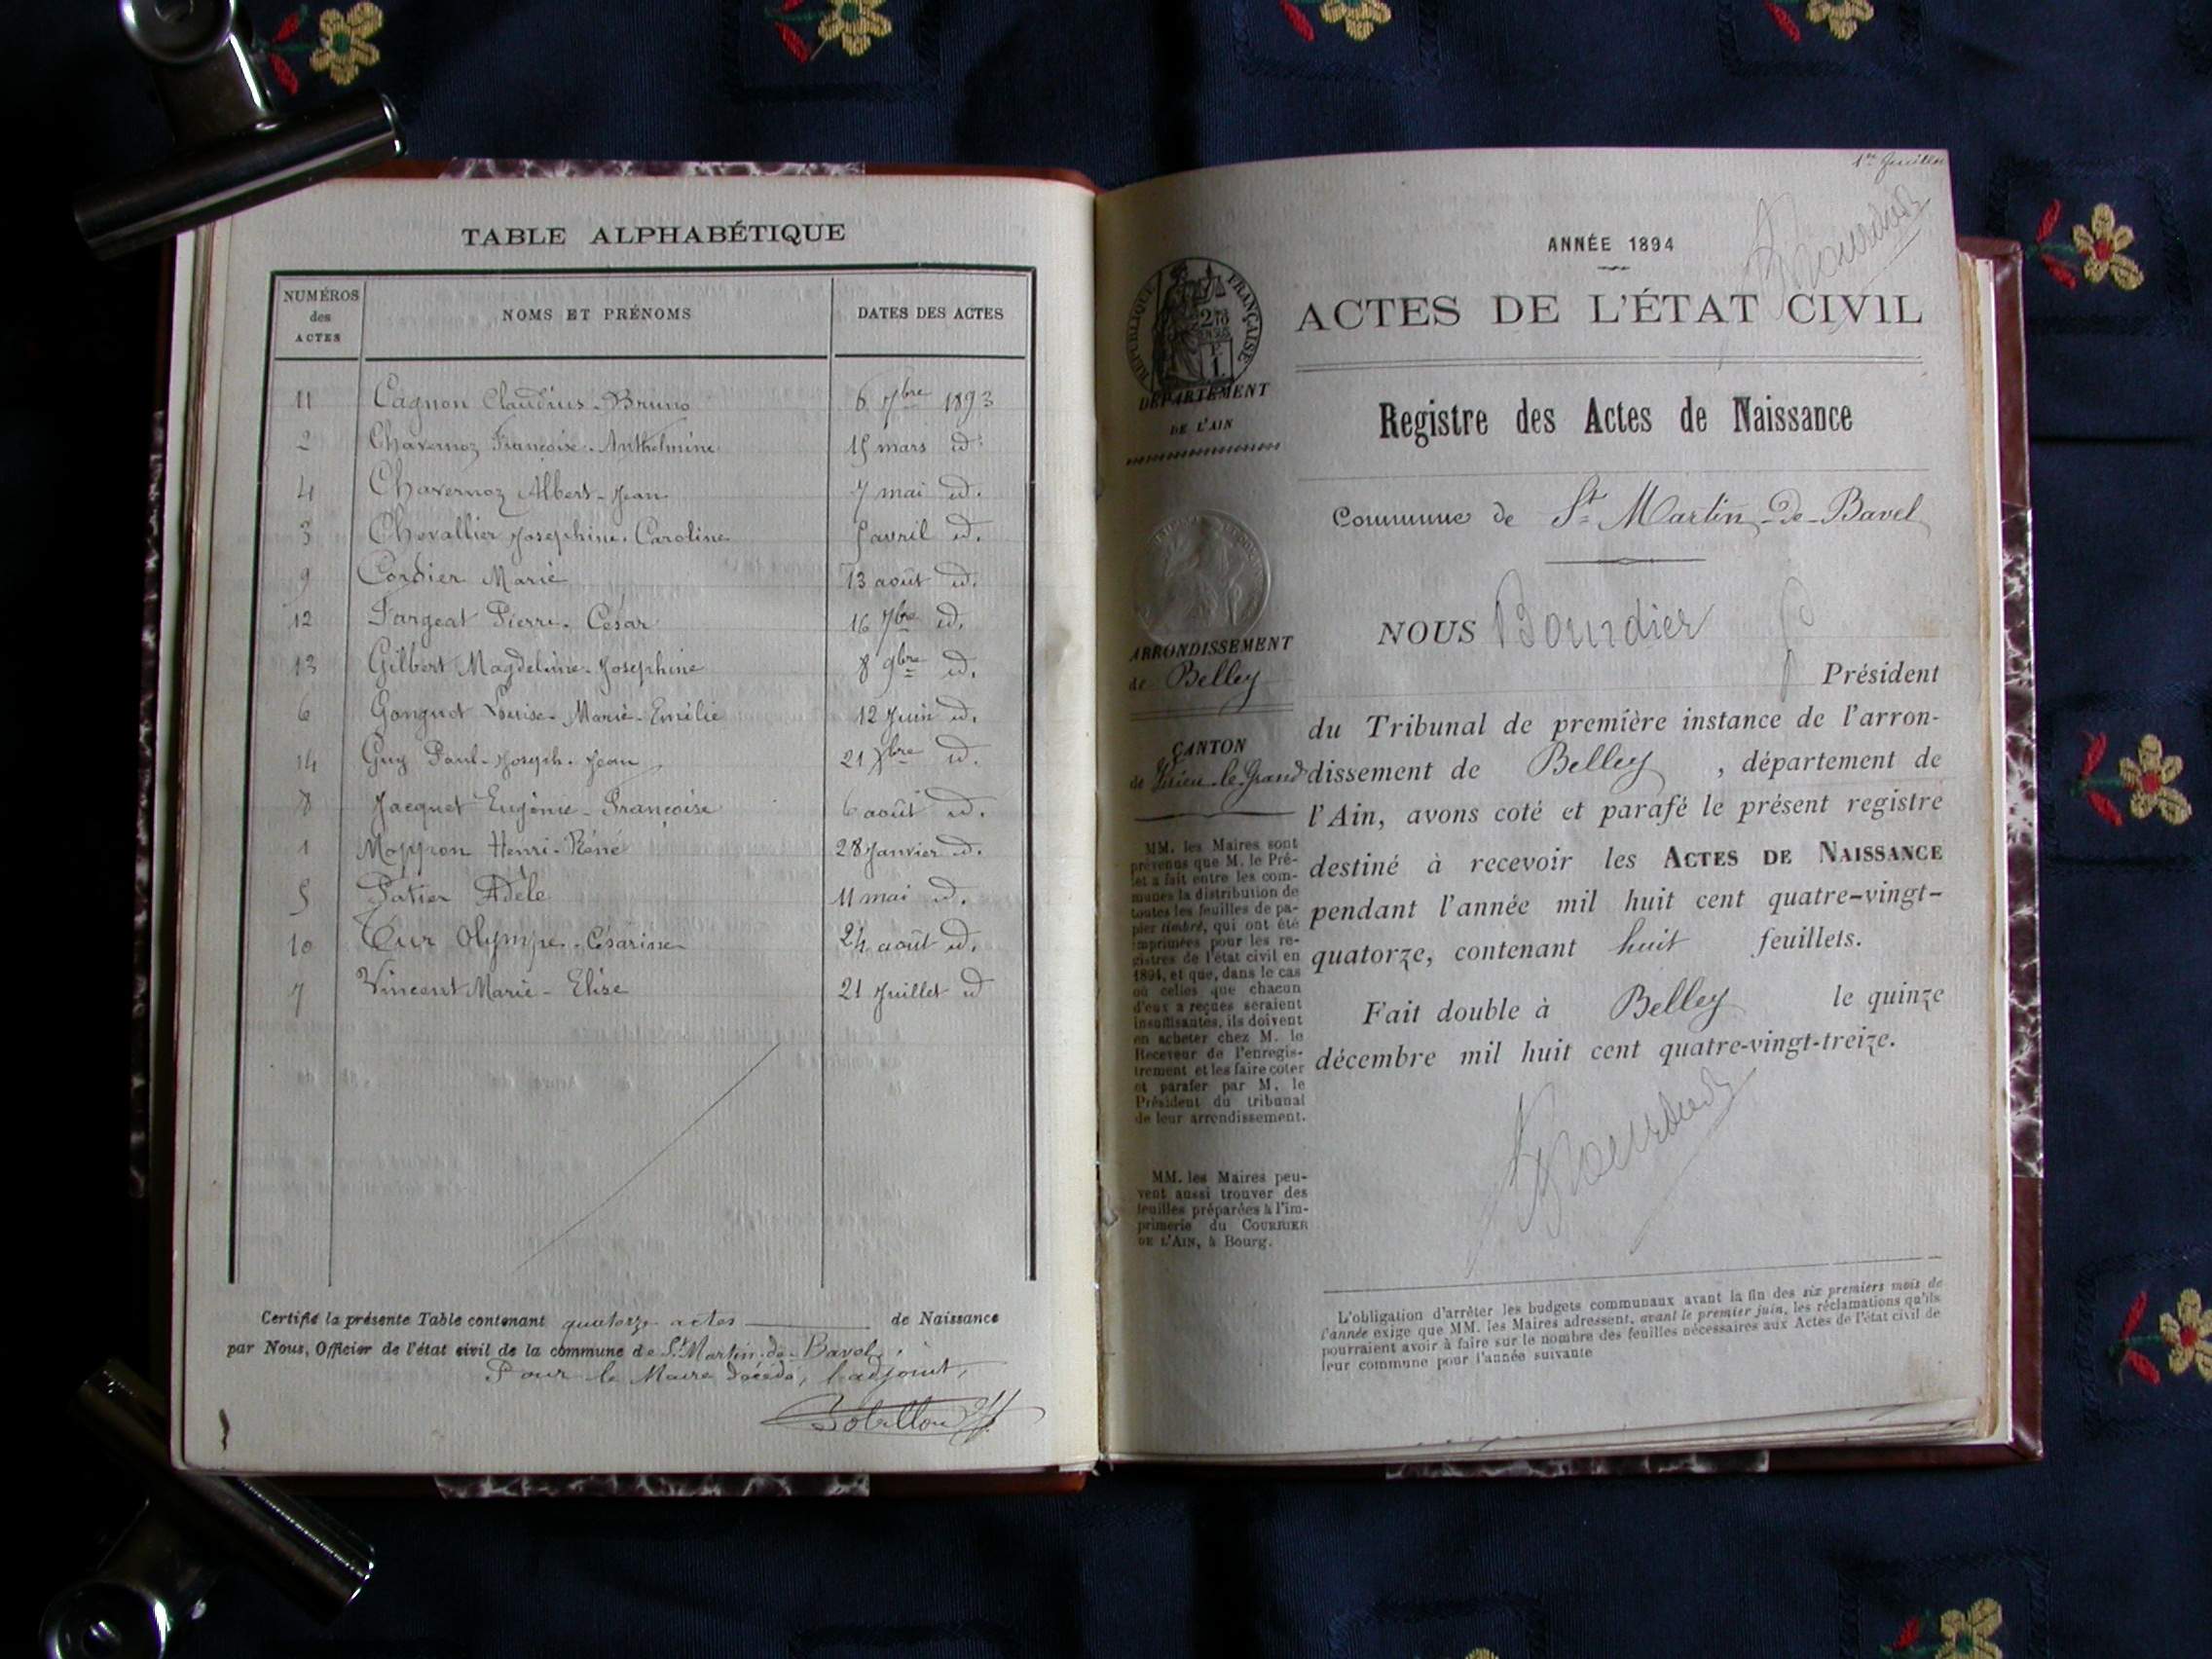 TABLE ALPHABÉTIQUE
NUMÉROS des ACTES
NOMS ET PRÉNOMS
DATES DES ACTES
11 Cagnon Claudius-Bruno 6 7bre 1893
2 Chavernoz Françoise-Anthelmine 15 mars id.
4 Chavernoz Albert-Jean 7 mai id.
3 Chevallier Josephine-Caroline 5 avril id.
9 Cordier Marie 13 août id.
12 Fargeat Pierre-César 16 7bre id.
13 Gilbert Magdeleine-Josephine 8 9bre id.
6 Gonguet Louise-Marie-Emilie 12 Juin id.
14 Guy Paul-Joseph-Jean 21 id.
8 Jacquet Eugénie-Françoise 6 août id.
1 Henri-Réné 28 Janvier id.
5 Adèle 11 mai id.
10 Olympe-Césarine 24 août id.
7 Vincent Marie-Elise 21 Juillet id
Certifié la présente Table contenant quatorze actes de Naissance
par Nous, Officier de l'état civil de la commune de St Martin-de-Bavel,
Pour le Maire décédé, l'adjoint,
ANNÉE 1894
ACTES DE L'ÉTAT CIVIL
RÉPUBLIQUE FRANÇAISE
DÉPARTEMENT
DE L'AIN
Registre des Actes de Naissance
Commune de St Martin-de-Bavel
NOUS Bourdier
Président
du Tribunal de première instance de l'arron-
dissement de Belley, département de
l'Ain, avons coté et parafé le présent registre
destiné à recevoir les ACTES DE NAISSANCE
pendant l'année mil huit cent quatre-vingt-
quatorze, contenant huit feuillets.
Fait double à Belley le quinze
décembre mil huit cent quatre-vingt-treize.
ARRONDISSEMENT
de Belley
CANTON
de Virieu-le-Grand
MM. les Maires sont
prévenus que M. le Pré-
fet a fait entre les com-
munes la distribution de
toutes les feuilles de pa-
pier timbré, qui ont été
imprimées pour les re-
gistres de l'état civil en
1894, et que, dans le cas
où celles que chacun
d'eux a reçues seraient
insuffisantes, ils doivent
en acheter chez M. le
Receveur de l'enregis-
trement et les faire coter
et parafer par M. le
Président du tribunal
de leur arrondissement.
MM. les Maires peu-
vent aussi trouver des
feuilles préparées à l'im-
primerie du COURRIER
DE L'AIN, à Bourg.
L'obligation d'arrêter les budgets communaux avant la fin des six premiers mois de
l'année exige que MM. les Maires adressent, avant le premier juin, les réclamations qu'ils
pourraient avoir à faire sur le nombre des feuilles nécessaires aux Actes de l'état civil de
leur commune pour l'année suivante